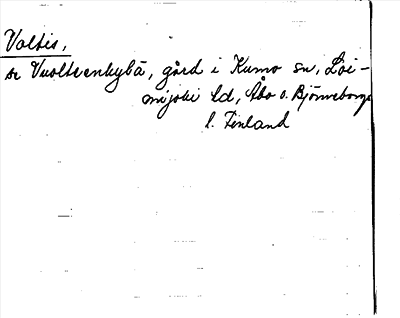 Voltis,
se Vuolteenkylä, gård i Kumo sn, Loi-
mijoki hd, Åbo o. Björneborgs
l. Finland